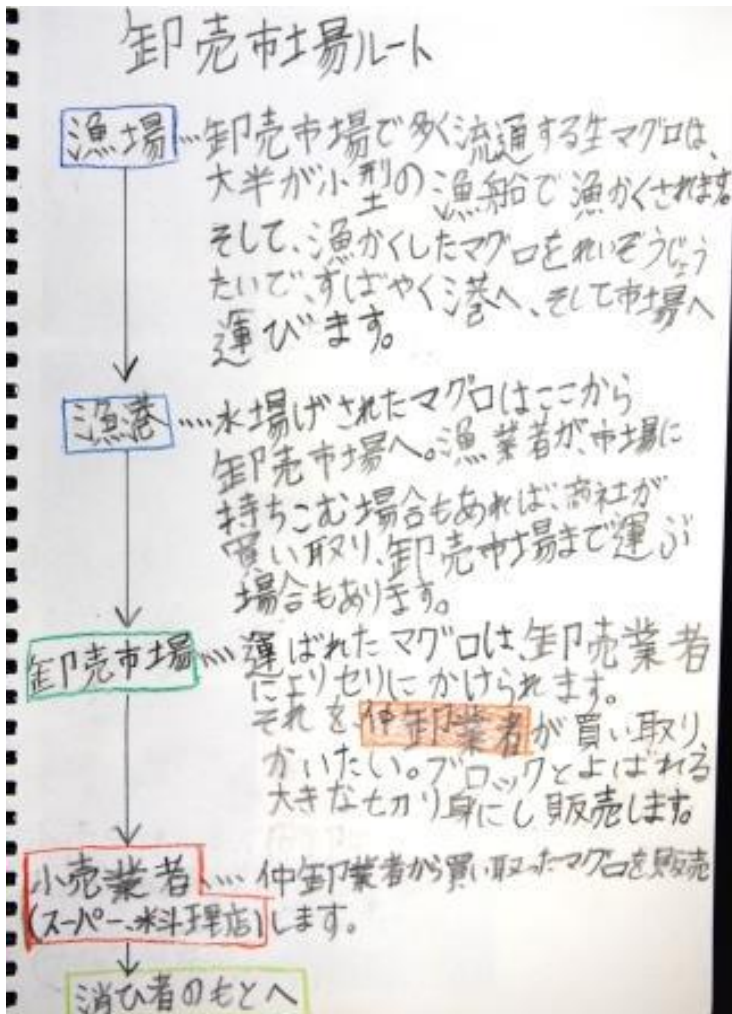 卸売市場ルート
漁場…卸売市場で多く流通する生マグロは、
大半が小型の漁船で漁かくされます。
そして、漁かくしたマグロをれいぞうじょう
たいで、すばやく港へ、そして市場へ
運びます。
漁港…水揚げされたマグロはここから
卸売市場へ。漁業者が、市場に
持ちこむ場合もあれば、商社が
買い取り、卸売市場まで運ぶ
場合もあります。
卸売市場…運ばれたマグロは、卸売業者
によりセリにかけられます。
それを、仲卸業者が買い取り、
かいたい。ブロックとよばれる
大きな切り身にし販売します。
小売業者…仲卸業者から買い取ったマグロを販売
(スーパー、料理店)します。
消ひ者のもとへ